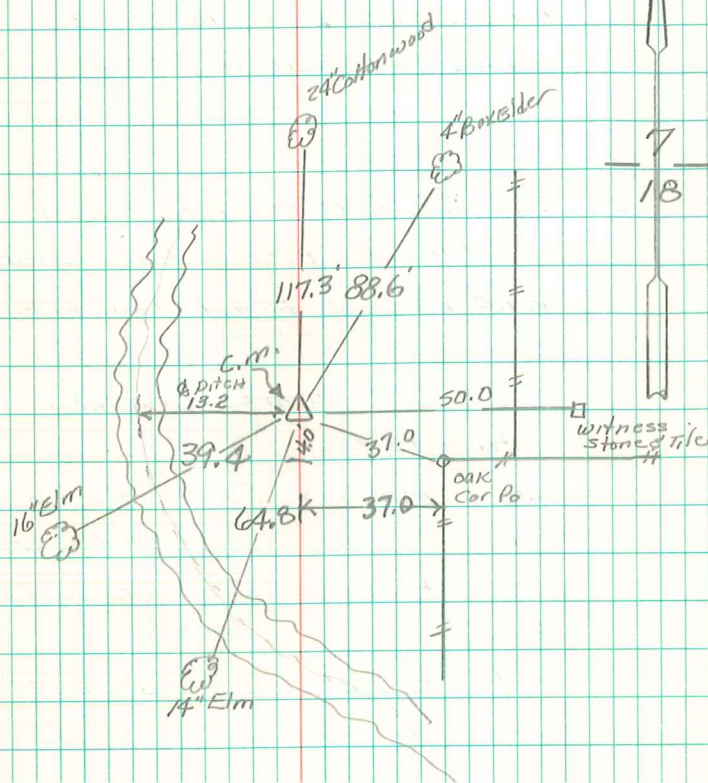 24" Cottonwood
4" BoxElder
7
18
117.3' 88.6'
C.M.
℄ Ditch
13.2
50.0
witness
Stone & Tile
4.0
37.0
39.4
oak
Cor Po.
16" Elm
64.8
37.0
14" Elm